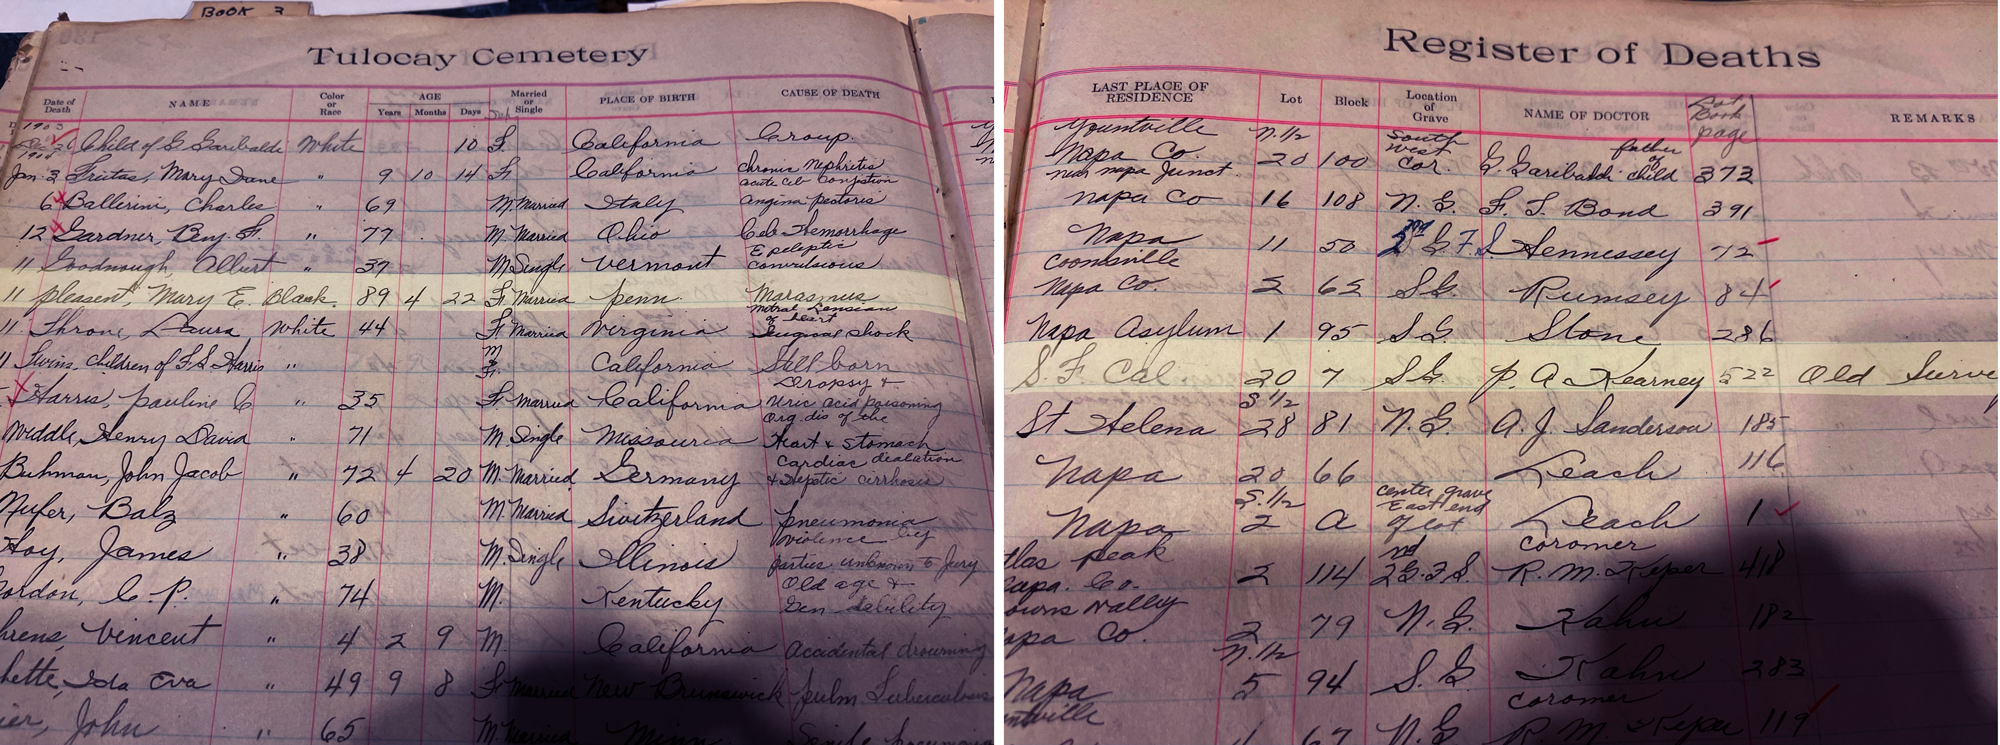 BOOK 3
Tulocay Cemetery
Date of Death NAME Color or Race AGE Years Months Days Married or Single PLACE OF BIRTH CAUSE OF DEATH
1903
Child of G Garibaldi White 10 F California Croup
1904
Jan. 3 Frietas, Mary Jane " 9 10 14 F California Chronic Nephritis
6 Ballerini, Charles " 69 M. Married Italy angina pectoris
12 Gardner, Benj. F. " 77 M Married Ohio Ceb Hemorrhage
11 Goodnough, Albert " 37 M Single Vermont Epeleptic convulsions
11 pleasent, Mary E. Black. 89 4 22 F. Married penn. Marasmus
11 Throne, Laura White 44 F. Married Virginia Surgical shock
11 Twins, children of F. S. Harris " M F. California Still born
Harris, pauline C " 35 F. Married California Dropsy + Uric acid poisoning
Widdle, Henry David " 71 M. Single Missouria Org dis of the Heart + stomach
Buhman, John Jacob " 72 4 20 M. Married Germany Cardiac dealation + Heptic cirrhosis
Nufer, Balz " 60 M. Married Switzerland pneumonia
Hoy, James " 38 M. Single Illinois violence by parties unknown to Jury
ordon, C. P. " 74 M. Kentucky Old age + Gen debility
hrens, Vincent " 4 2 9 M. California Accidental drowning
hette, Ida Eva " 49 9 8 F Married New Brunswick pulm Tuberculosis
ier, John " 65 M. Married
Register of Deaths
LAST PLACE OF RESIDENCE Lot Block Location of Grave NAME OF DOCTOR Lot Book page REMARKS
Yountville Napa Co. N. 1/2 20 100 South West cor. G. Garibaldi father of child 373
near napa Junct. napa Co 16 108 N. G. F. T. Bond 391
Napa 11 50 2nd G F S Hennessey 72
Coomsville Napa Co. 2 62 S G. Rumsey 84
Napa Asylum 1 95 S G. Stone 286
S. F. Cal 20 7 S G. P. A Kearney 522 Old Surve
St Helena S 1/2 28 81 N. G. A. J. Sanderson 185
Napa 20 66 Leach 116
Napa S. 1/2 2 A center grave East end of lot Leach 1
tlas peak apa. Co. 2 114 2nd G. F S. coroner R. M. Keper 418
owns Valley apa Co. 2 79 N. G. Kahn 182
Napa N. 1/2 5 94 S. G Kahn 283
ntville 67 N. G coroner R. M. Keper 119